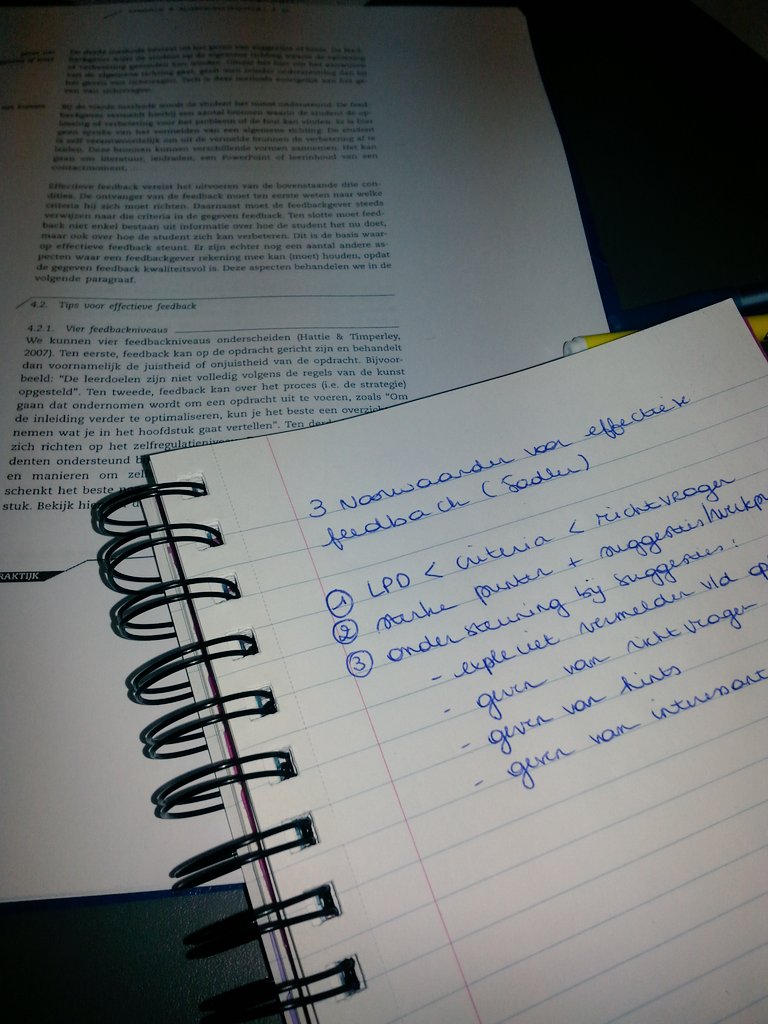 De derde methode bestaat uit het geven van suggesties of hints. De feed-
van de algemene richting gaat, geeft men minder ondersteuning dan bij
het geven van richtvragen. Toch is deze methode energieker aan het ge-
ven van richtvragen.
Bij de vierde methode wordt de student het minst ondersteund. De feed-
backgever vermeldt hierbij een aantal bronnen waarin de student de op-
lossing of verbetering voor het probleem of de fout kan vinden. Er is hier
geen sprake van het vermelden van een algemene richting. De student
is zelf verantwoordelijk om uit de vermelde bronnen de verbetering af te
leiden. Deze bronnen kunnen verschillende vormen aannemen. Het kan
gaan om literatuur, leidraden, een PowerPoint of leerinhoud van een
contactmoment, ...
Effectieve feedback vereist het uitvoeren van de bovenstaande drie con-
dities. De ontvanger van de feedback moet ten eerste weten naar welke
criteria hij zich moet richten. Daarnaast moet de feedbackgever steeds
verwijzen naar die criteria in de gegeven feedback. Ten slotte moet feed-
back niet enkel bestaan uit informatie over hoe de student het nu doet,
maar ook over hoe de student zich kan verbeteren. Dit is de basis waar-
op effectieve feedback steunt. Er zijn echter nog een aantal andere as-
pecten waar een feedbackgever rekening mee kan (moet) houden, opdat
de gegeven feedback kwaliteitsvol is. Deze aspecten behandelen we in de
volgende paragraaf.
4.2. Tips voor effectieve feedback
4.2.1. Vier feedbackniveaus
We kunnen vier feedbackniveaus onderscheiden (Hattie & Timperley,
2007). Ten eerste, feedback kan op de opdracht gericht zijn en behandelt
dan voornamelijk de juistheid of onjuistheid van de opdracht. Bijvoor-
beeld: “De leerdoelen zijn niet volledig volgens de regels van de kunst
opgesteld”. Ten tweede, feedback kan over het proces (i.e. de strategie)
gaan dat ondernomen wordt om een opdracht uit te voeren, zoals “Om
de inleiding verder te optimaliseren, kun je het beste een overzich
nemen wat je in het hoofdstuk gaat vertellen”. Ten derd
zich richten op het zelfregulatieniveau
denten ondersteund
en manieren om zel
schenkt het beste
stuk. Bekijk hi
RAKTIJK
3 voorwaarden voor effectieve
feedback (Sadler)
① LPD < criteria < richtvragen
② sterke punten + suggesties/werkpu
③ ondersteuning bij suggesties:
- expliciet vermelden v/d op
- geven van richtvragen
- geven van hints
- geven van interessant